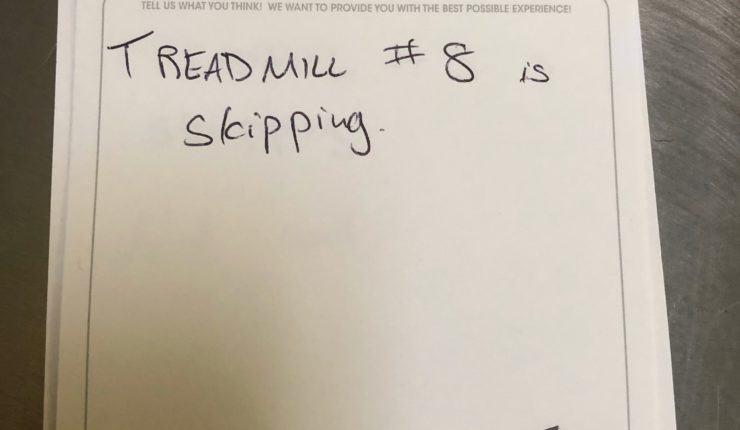 TELL US WHAT YOU THINK! WE WANT TO PROVIDE YOU WITH THE BEST POSSIBLE EXPERIENCE!
TREADMILL #8 is
skipping.